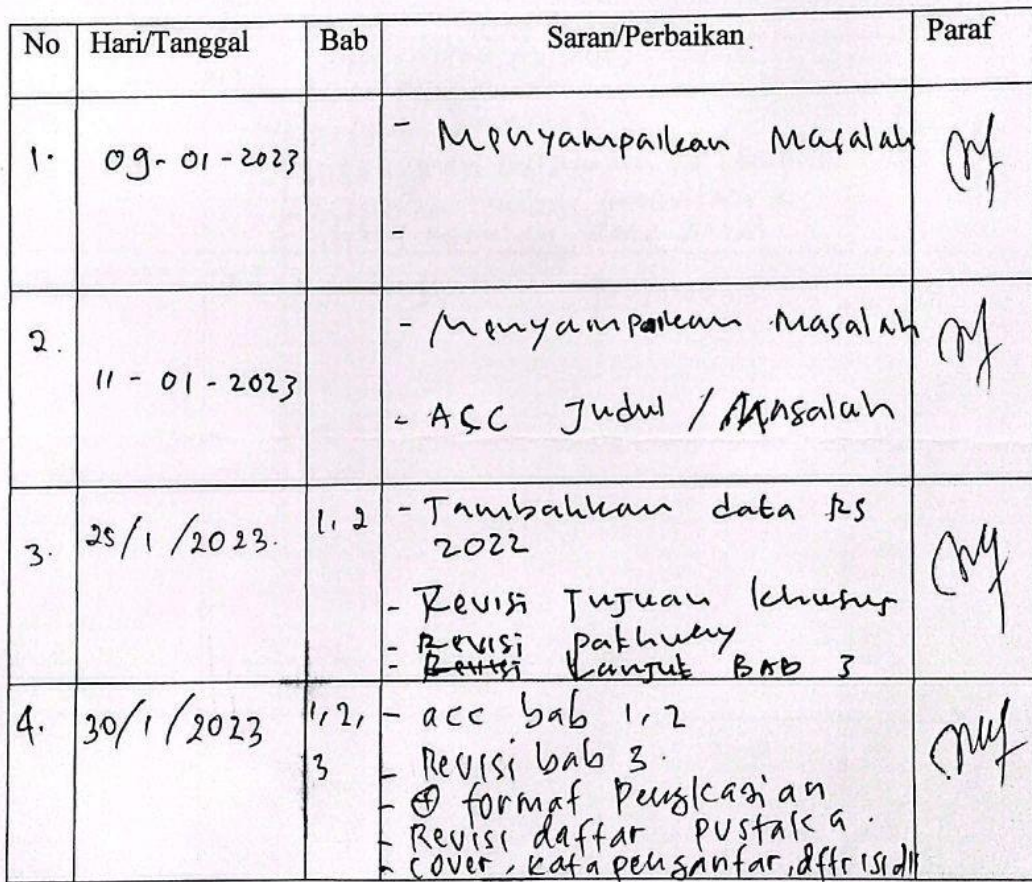 No Hari/Tanggal Bab Saran/Perbaikan Paraf
1. 09-01-2023 - Menyampaikan Masalah
-
2. - Menyampaikan Masalah
11-01-2023
- ACC Judul / Masalah
3. 25/1/2023. 1,2 - Tambahkan data RS
2022
- Revisi Tujuan khusus
- Revisi pathway
- Revisi Lanjut BAB 3
4. 30/1/2023 1,2, - acc bab 1,2
3 - Revisi bab 3.
- ⊕ format Pengkajian
- Revisi daftar pustaka.
- cover, kata pengantar, dftr isi dll